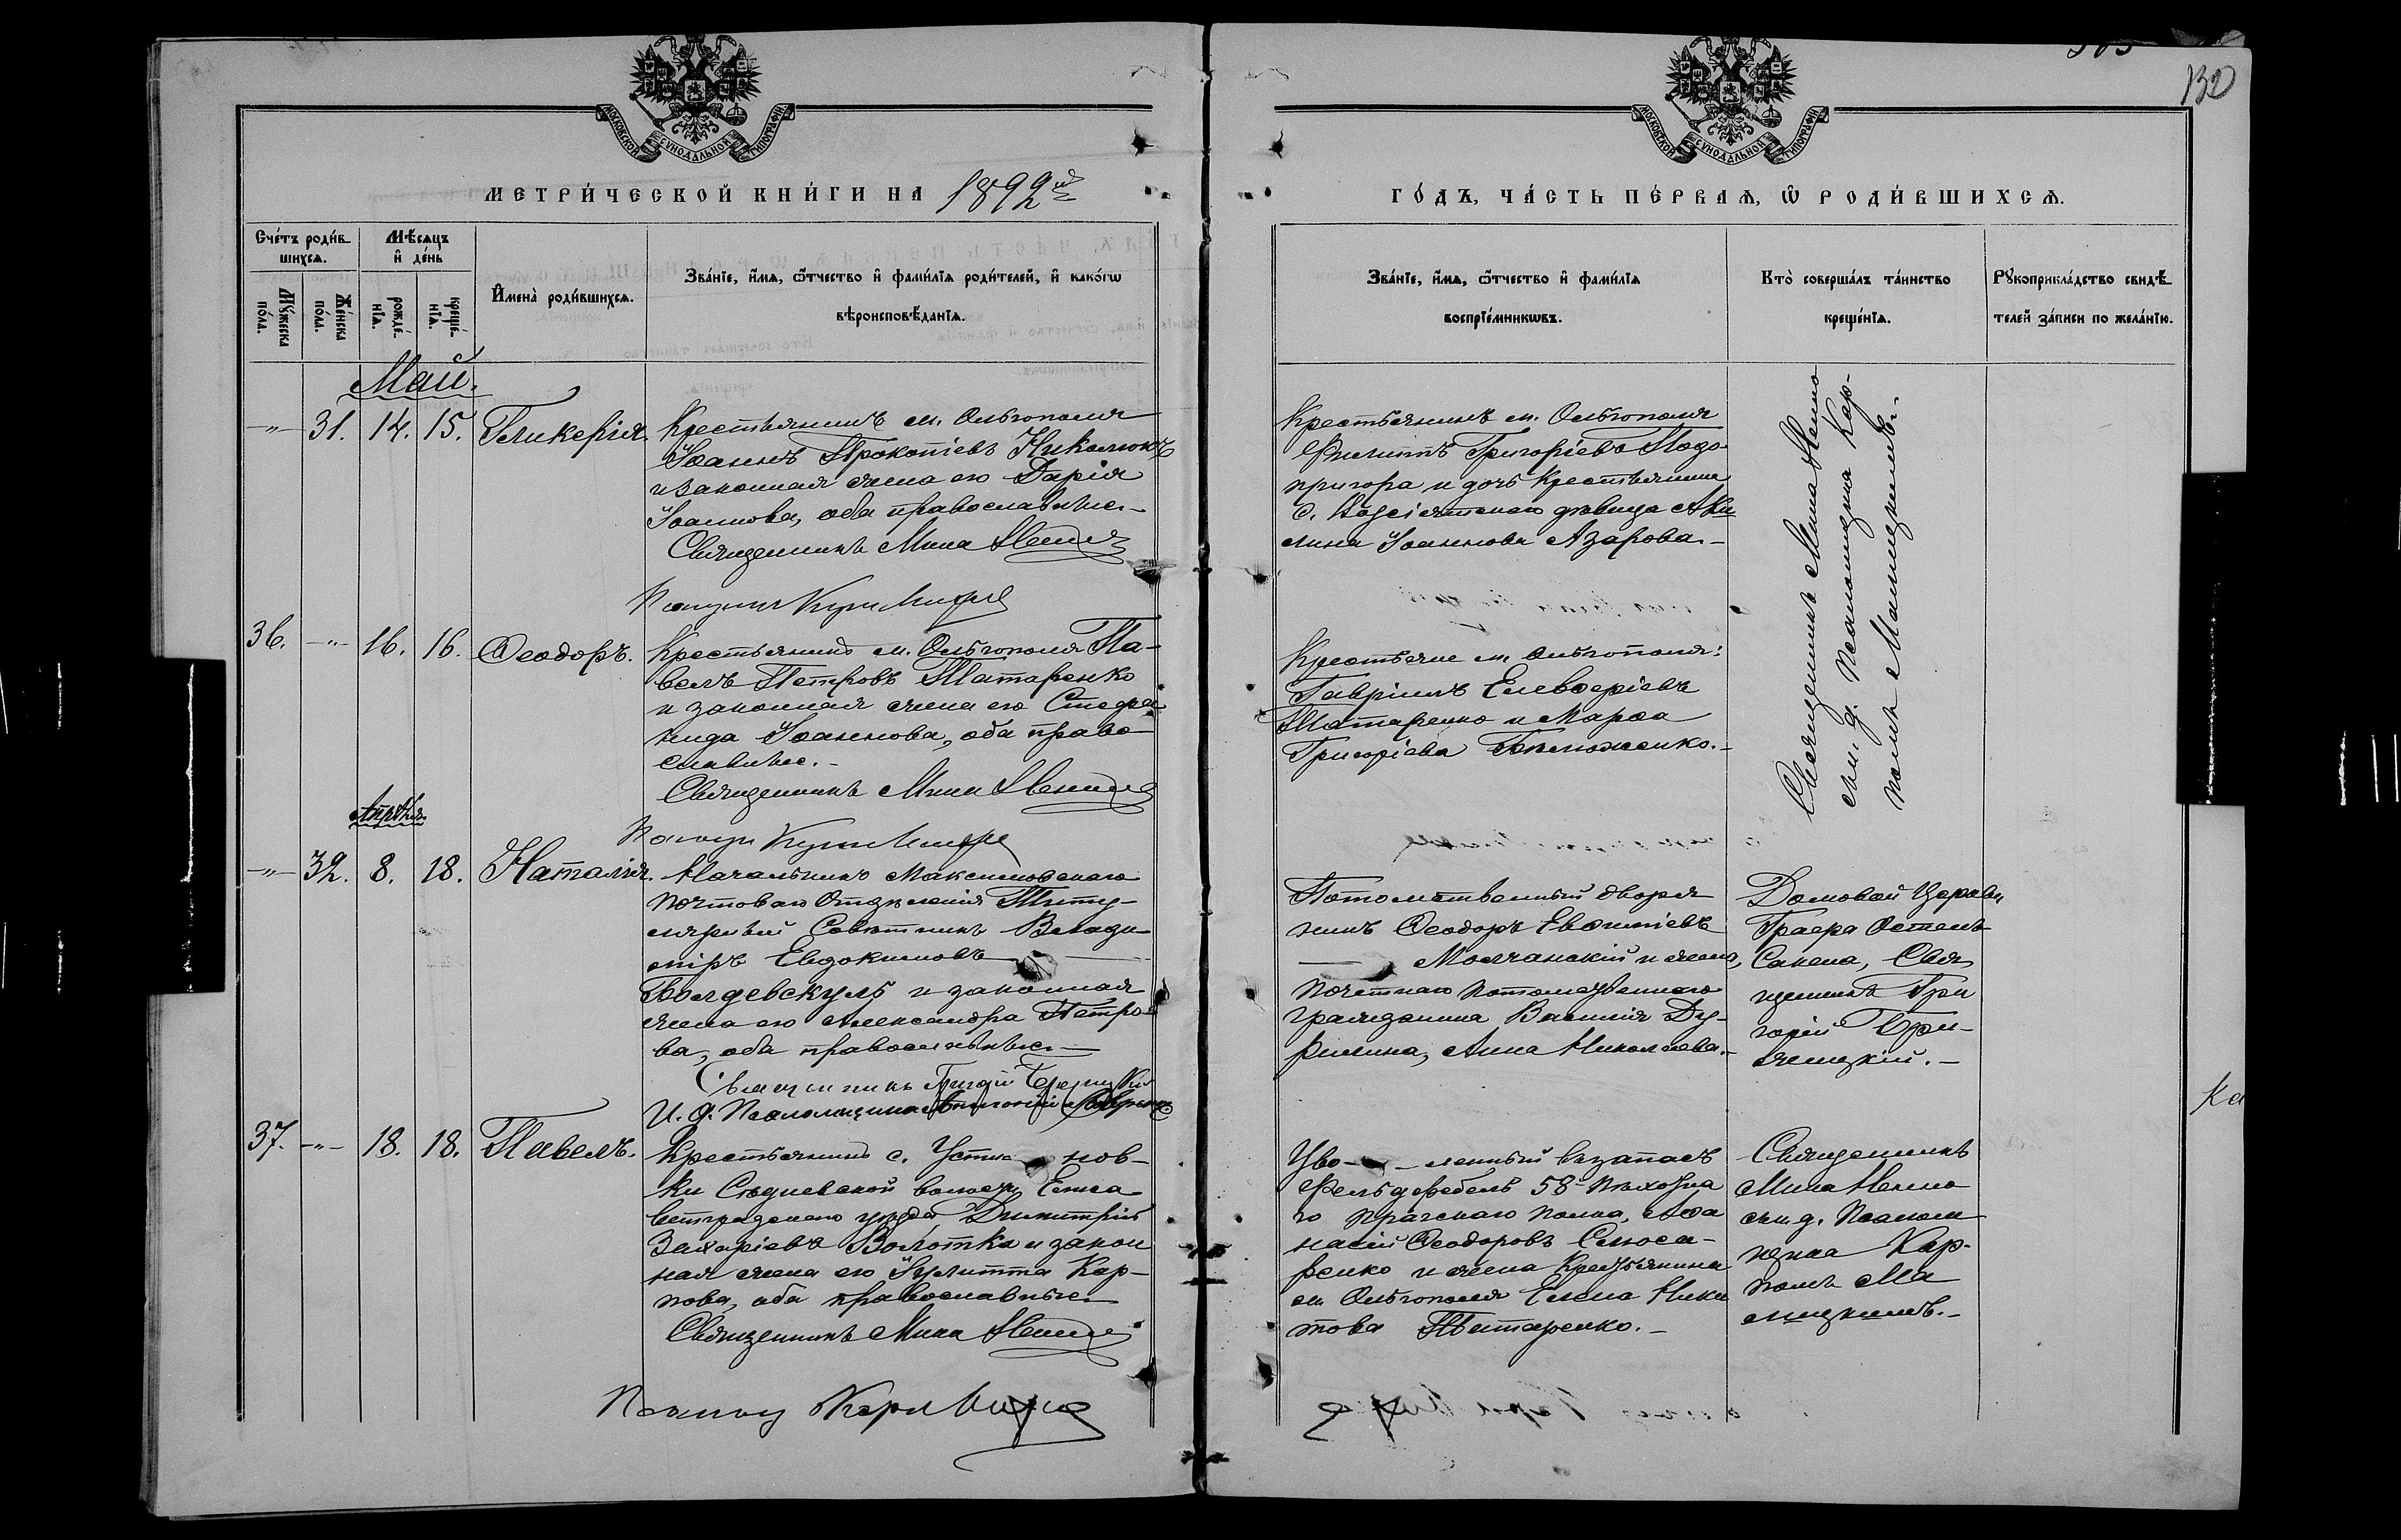 130
МОСКОВСКОЙ СѴНОДАЛЬНОЙ ТИПОГРАФІИ
МОСКОВСКОЙ СѴНОДАЛЬНОЙ ТИПОГРАФІИ
МЕТРИ́ЧЕСКОЙ КНИ́ГИ НА 1892й
ГО́ДЪ, ЧА́СТЬ ПЕ́РВАѦ, Ѿ РОДИ́ВШИХСѦ.
Сче́тъ роди́в-
шихсѧ.
Мꙋ́жеска по́ла.
Же́нска по́ла.
Мѣ́сѧцъ и҆ де́нь
рожде́-
нїѧ.
креще́-
нїѧ.
И҆мена̀ роди́вшихсѧ.
Зва́нїе, и҆́мѧ, ѻ҆́тчество и҆ фами́лїѧ роди́телей, и҆ како́гѡ
вѣроисповѣ́данїѧ.
Зва́нїе, и҆́мѧ, ѻ҆́тчество и҆ фами́лїѧ
воспрїе́мникѡвъ.
Кто̀ соверша́лъ та́инство
креще́нїѧ.
Рꙋкоприкла́дство свидѣ́-
телей за́писи по жела́нїю.
Май.
-„- 31. 14. 15. Гликерія.
Крестьянинъ м. Ольгополя
Іоаннъ Прокопіевъ Николюкъ
и законная жена его Дарія
Іоаннова, оба православные.-
Священникъ Мина
Крестьянинъ м. Ольгополя
Филиппъ Григоріевъ Подо-
пригора и дочь крестьянина
дѣвица Аки
лина Іоаннова Азарова.-
Священникъ Мина
съ и. д. Псаломщика Кар-
помъ
36. -„- 16. 16. Ѳеодоръ.
Крестьянинъ м. Ольгополя Па-
велъ Петровъ Татаренко
и законная жена его Стефа-
нида Іоаннова, оба право-
славные.-
Священникъ Мина
Крестьяне м. Ольгополя:
Гавріилъ Елевѳеріевъ
Татаренко и Марѳа
Григоріева
Апрѣля
-„- 32. 8. 18. Наталія.
Начальникъ Максимовскаго
почтоваго Отдѣленія Титу-
лярный Совѣтникъ Влади-
міръ Евдокимовъ
Болдевскулъ и законная
жена его Александра Петро-
ва, оба православные.-
Священникъ Григорій
И. д. Псаломщика
Потомственный дворя
нинъ Ѳеодоръ Евѳиміевъ
Молчанскій и жена
почетнаго потомственнаго
гражданина Василія Ду-
рилина, Анна Николаева.-
Домовой Церкви
Графа Остенъ-
Сакена, Свя
щенникъ Гри
горій
37. -„- 18. 18. Павелъ.
Крестьянинъ с. Усти нов-
ки Сѣдневской волости Елиса-
ветградскаго уѣзда Димитрій
Захаріевъ Волотка и закон
ная жена его Іулитта Кар-
пова, оба православные.
Священникъ Мина
Уво- -ленный въ запасъ
Фельдфебель 58 Пѣхотна
го Прагскаго полка, Аѳа
насій Ѳеодоровъ Слюса-
ренко и жена крестьянина
м. Ольгополя Елена Ники
това Татаренко.-
Священникъ
Мина
съ и. д. Псалом-
щика Кар-
помъ
Ка